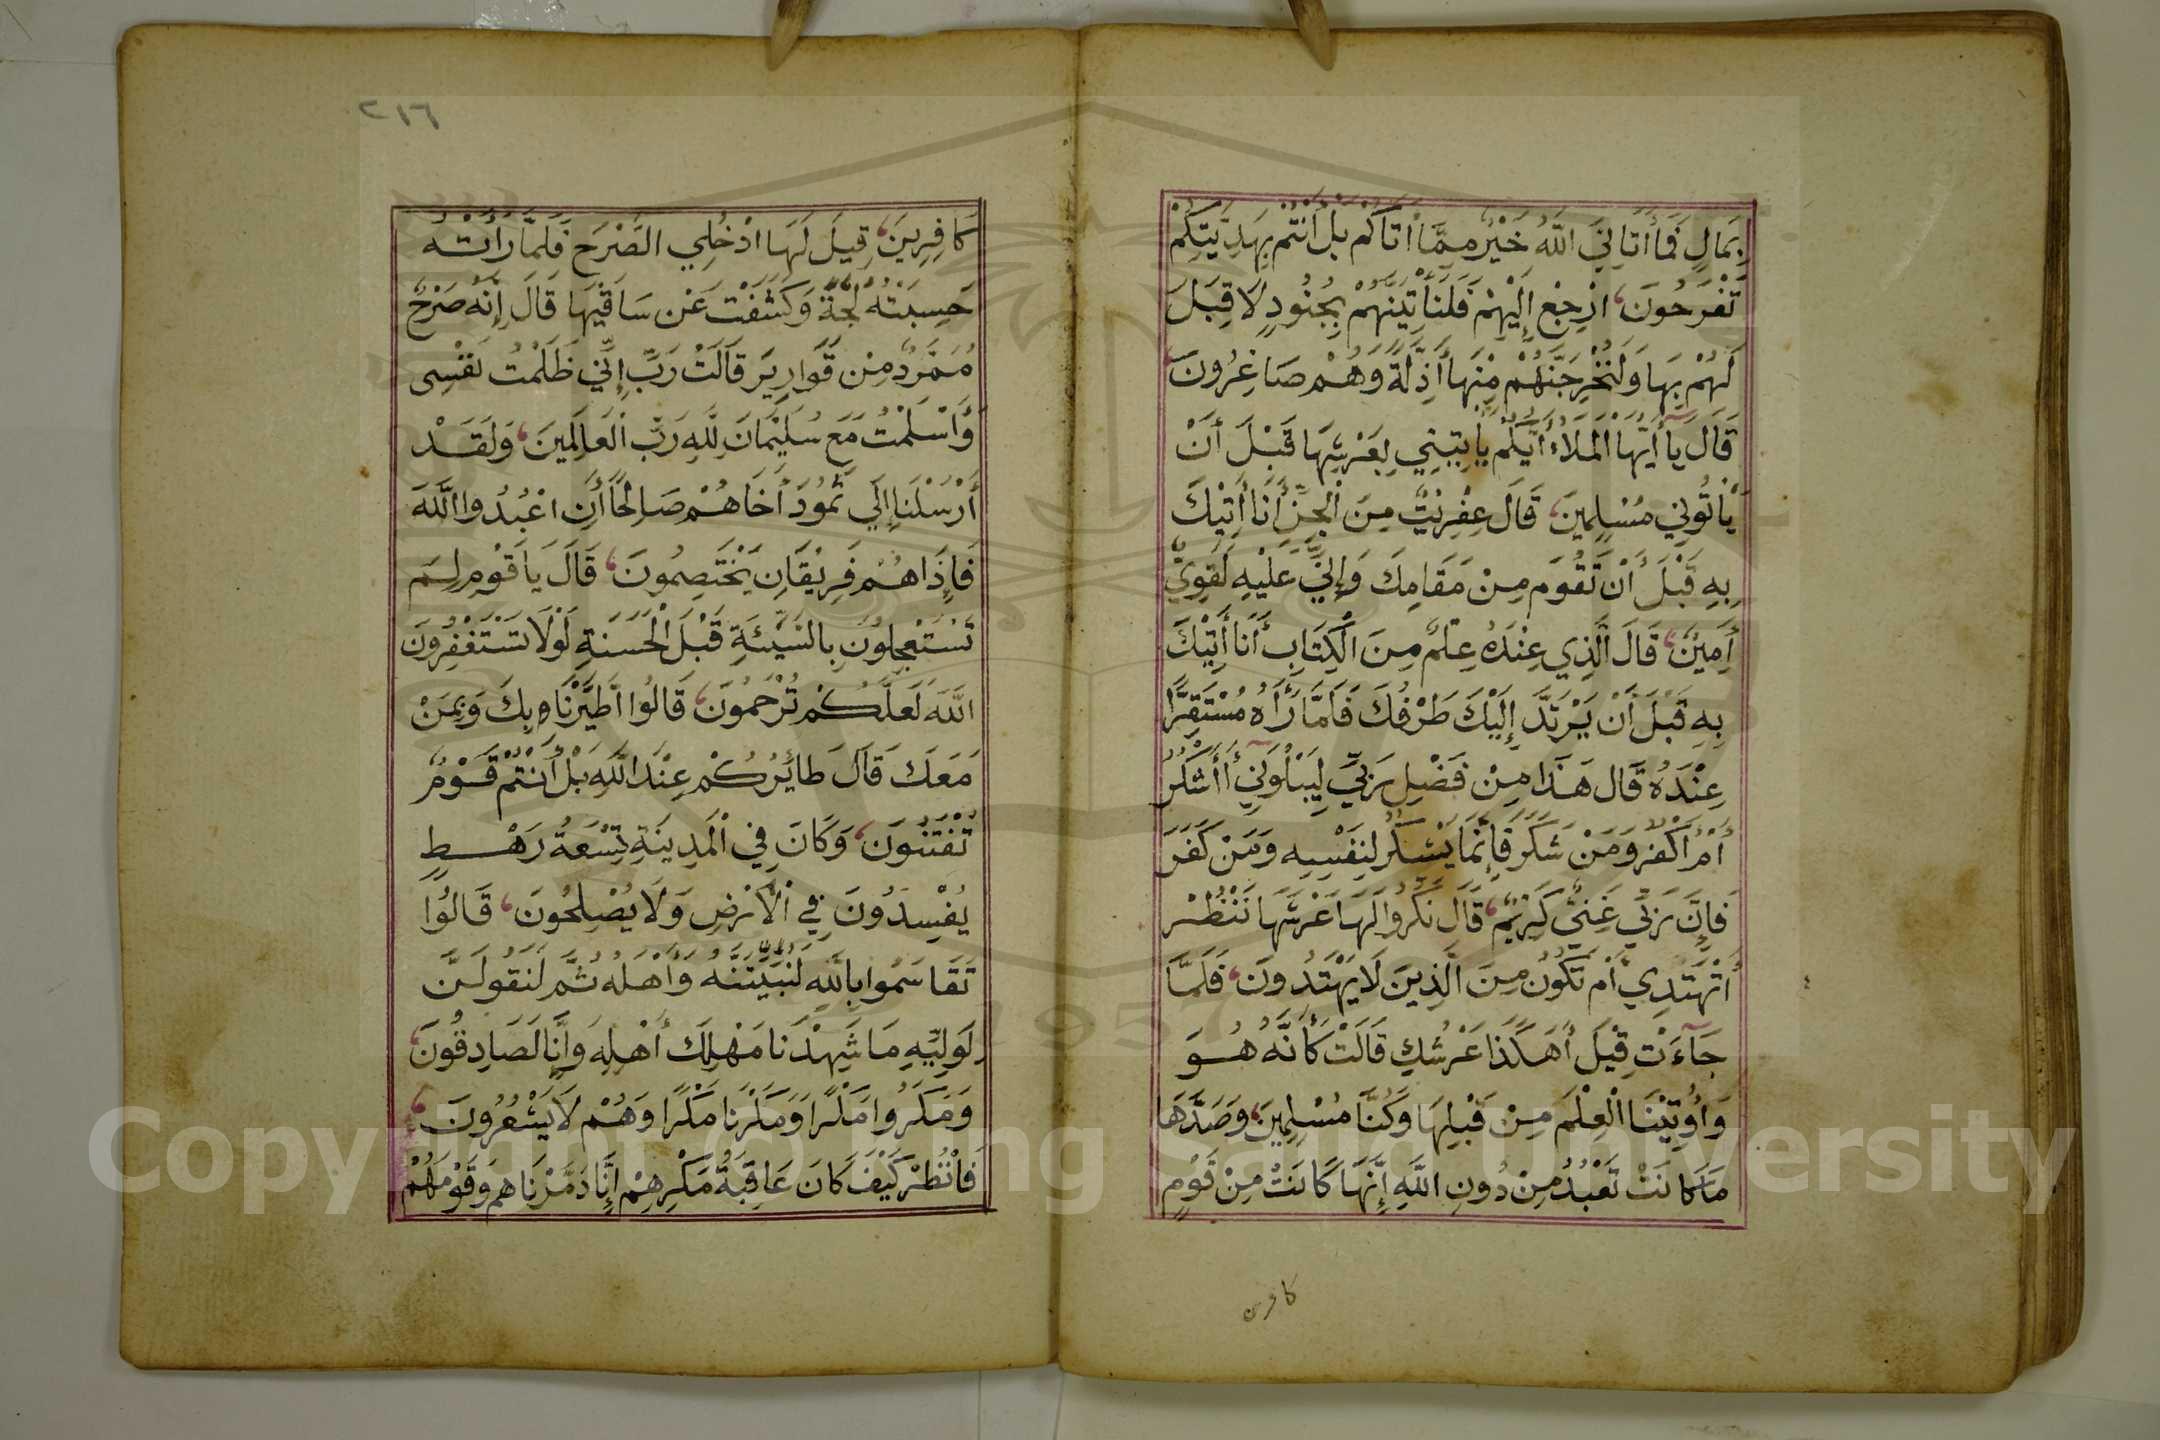 بِمَالٍ فَمَا أَتَانِيَ اللَّهُ خَيْرٌ مِمَّا أَتَاكُمْ بَلْ أَنْتُمْ بِهَدِيَّتِكُمْ
تَفْرَحُونَ، ارْجِعْ إِلَيْهِمْ فَلَنَأْتِيَنَّهُمْ بِجُنُودٍ لَا قِبَلَ
لَهُمْ بِهَا وَلَنُخْرِجَنَّهُمْ مِنْهَا أَذِلَّةً وَهُمْ صَاغِرُونَ،
قَالَ يَا أَيُّهَا الْمَلَاءُ أَيُّكُمْ يَأْتِيَنِي بِعَرْشِهَا قَبْلَ أَنْ
يَأْتُونِي مُسْلِمِينَ، قَالَ عِفْرِيْتٌ مِنَ الْجِنِّ أَنَا أَتِيْكَ
بِهِ قَبْلَ أَنْ تَقُومَ مِنْ مَقَامِكَ وَإِنِّي عَلَيْهِ لَقَوِيٌّ
أَمِينٌ، قَالَ الَّذِي عِنْدَهُ عِلْمٌ مِنَ الْكِتَابِ أَنَا أَتِيْكَ
بِهِ قَبْلَ أَنْ يَرْتَدَّ إِلَيْكَ طَرْفُكَ فَلَمَّا رَأَهُ مُسْتَقِرًّا
عِنْدَهُ قَالَ هَذَا مِنْ فَضْلِ رَبِّي لِيَبْلُوَنِي أَأَشْكُرُ
أَمْ أَكْفُرُ وَمَنْ شَكَرَ فَإِنَّمَا يَشْكُرُ لِنَفْسِهِ وَمَنْ كَفَرَ
فَإِنَّ رَبِّي غَنِيٌّ كَرِيْمٌ، قَالَ نَكِّرُوا لَهَا عَرْشَهَا نَنْظُرْ
أَتَهْتَدِي أَمْ تَكُونُ مِنَ الَّذِينَ لَا يَهْتَدُونَ، فَلَمَّا
جَآءَتْ قِيْلَ أَهَكَذَا عَرْشُكِ قَالَتْ كَأَنَّهُ هُوَ
وَأُوتِيْنَا الْعِلْمَ مِنْ قَبْلِهَا وَكُنَّا مُسْلِمِينَ، وَصَدَّهَا
مَا كَانَتْ تَعْبُدُ مِنْ دُونِ اللَّهِ إِنَّهَا كَانَتْ مِنْ قَوْمٍ
كافرين
٢١٦
كَافِرِينَ، قِيلَ لَهَا ادْخُلِي الصَّرْحَ فَلَمَّا رَأَتْهُ
حَسِبَتْهُ لُجَّةً وَكَشَفَتْ عَنْ سَاقَيْهَا قَالَ إِنَّهُ صَرْحٌ
مُمَرَّدٌ مِنْ قَوَارِيرَ قَالَتْ رَبِّ إِنِّي ظَلَمْتُ نَفْسِى
وَأَسْلَمْتُ مَعَ سُلَيْمَانَ لِلَّهِ رَبِّ الْعَالَمِينَ، وَلَقَدْ
أَرْسَلْنَا إِلَي ثَمُودَ أَخَاهُمْ صَالِحًا أَنِ اعْبُدُوا اللَّهَ
فَإِذَا هُمْ فَرِيْقَانِ يَخْتَصِمُونَ، قَالَ يَا قَوْمِ لِمَ
تَسْتَعْجِلُونَ بِالسَّيِّئَةِ قَبْلَ الْحَسَنَةِ لَوْلَا تَسْتَغْفِرُونَ
اللَّهَ لَعَلَّكُمْ تُرْحَمُونَ، قَالُوا اطَّيَّرْنَا بِكَ وَبِمَنْ
مَعَكَ قَالَ طَائِرُكُمْ عِنْدَ اللَّهِ بَلْ أَنْتُمْ قَوْمٌ
تُفْتَنُونَ، وَكَانَ فِي الْمَدِينَةِ تِسْعَةُ رَهْطٍ
يُفْسِدُونَ فِي الْأَرْضِ وَلَا يُصْلِحُونَ، قَالُوا
تَقَاسَمُوا بِاللَّهِ لَنُبَيِّتَنَّهُ وَأَهْلَهُ ثُمَّ لَنَقُولَنَّ
لِوَلِيِّهِ مَا شَهِدْنَا مَهْلِكَ أَهْلِهِ وَإِنَّا لَصَادِقُونَ،
وَمَكَرُوا مَكْرًا وَمَكَرْنَا مَكْرًا وَهُمْ لَا يَشْعُرُونَ،
فَانْظُرْ كَيْفَ كَانَ عَاقِبَةُ مَكْرِهِمْ إِنَّا دَمَّرْنَاهُمْ وَقَوْمَهُمْ
1957
Copyright © King Saud University